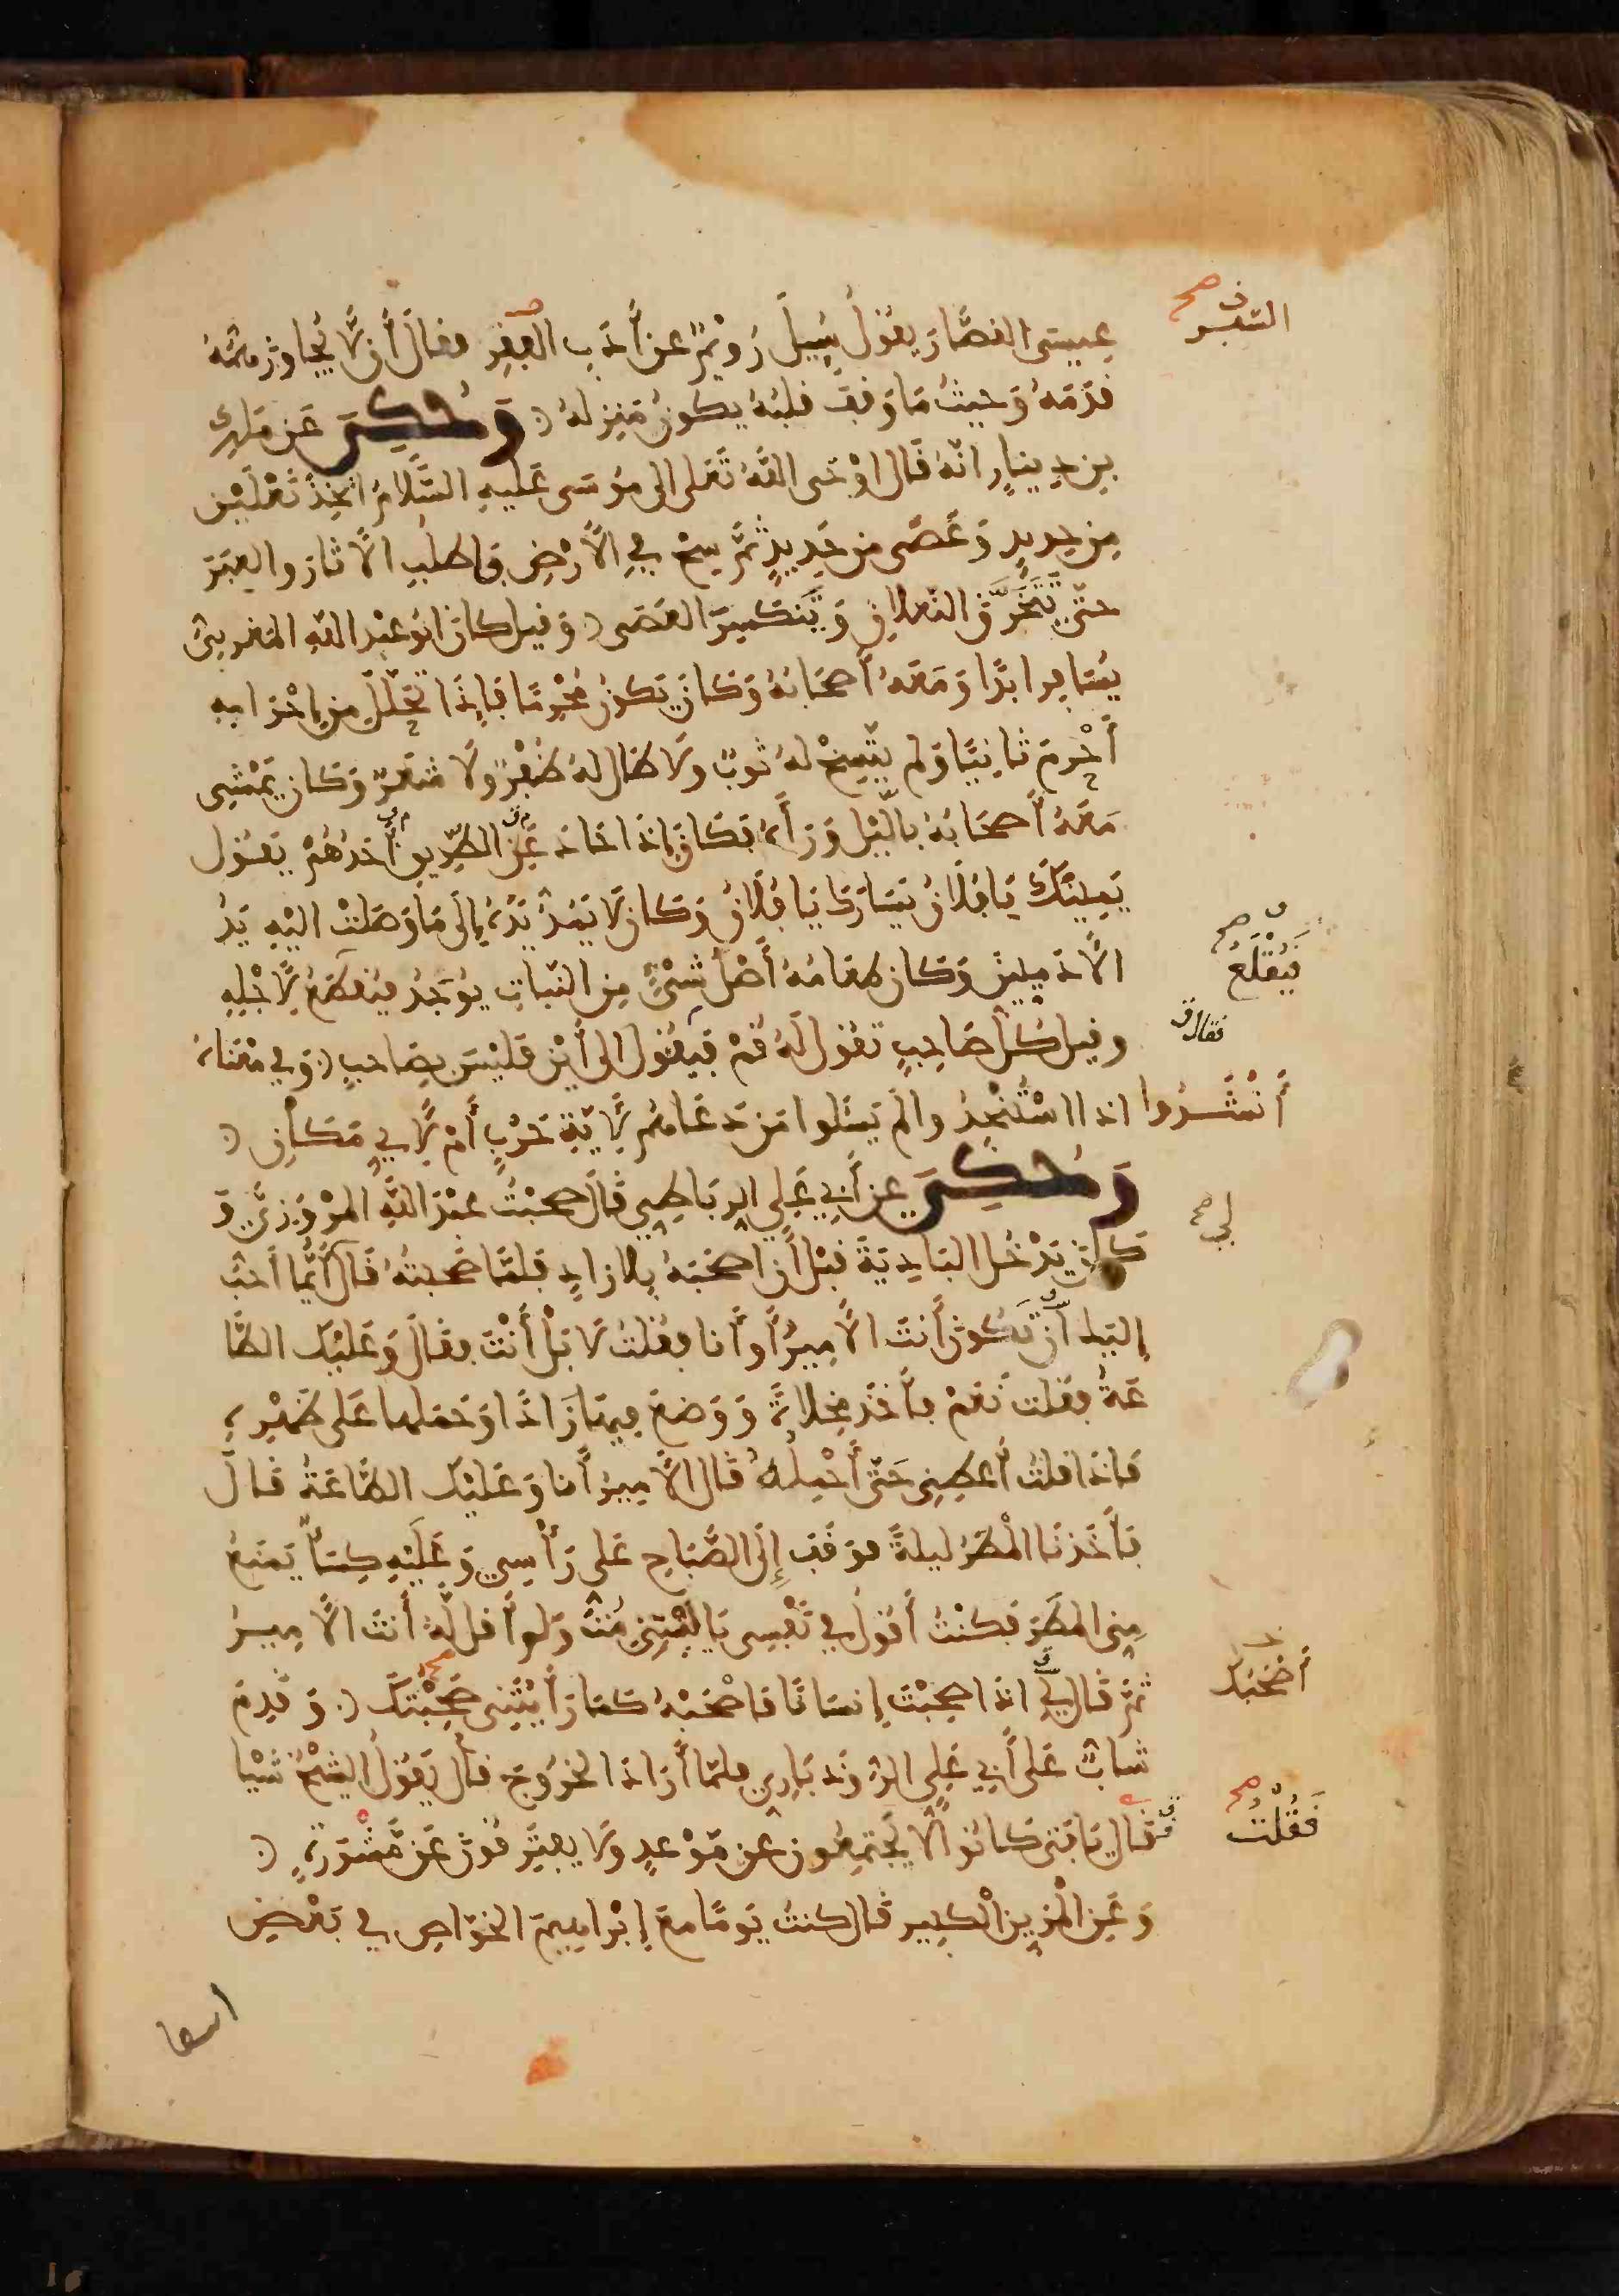 عيسى القصار يقول سُئِلَ رُوَيْمٌ عن أَدَبِ الفقر فقال أَن لَّا يُجاوز همُّهُ
السَّفر صح
قدمَهُ وَحيثُ مَا وَقفَ قلبُهُ يكونُ مَنزِلهُ وَحُكِيَ عَن مَلِك
بنِ دِينارٍ انّهُ قَال اوْحَى اللّهُ تَعَلى الى مُوسَى عَليهِ السَّلامُ اتّخِذْ نَعْلَيْنِ
مِن حديدٍ وَعَصًى من حَدِيدٍ ثمَّ سِحْ فِي الأَرْضِ فاطلُبِ الآثارَ والعِبَرَ
حتّى تَتَخَرَّقَ النّعلانِ وَتَنكسِرَ العَصَى وَقيل كان ابُو عبْد اللّهِ المَغربِيُّ
يُسَافِر ابدًا وَمَعَهُ أَصحَابُهُ وَكَان يَكونُ مُحْرِمًا فَإِذَا تَحَلّلَ مِن إِحْرَامِهِ
أَحْرمَ ثَانِيًا وَلم يتّسِخْ لهُ ثوبٌ ولَا طَال لهُ ظُفْرٌ ولَا شَعَرٌ وَكان يَمْشِي
مَعَهُ أَصحَابُهُ بالّيْل وَرَاءَهُ فكَانَ إِذَا حَادَ عَنِ الطّرِيقِ أَحَدُهُمْ يَقُول
يَمِينَكَ يَا فُلَان يَسَارَكَ يَا فُلَانُ وَكان لَا يَمُدُّ يَدَهُ إِلَى مَا وَصَلَتْ اليْهِ يَدُ
الآدَمِيِّينَ وَكَان طعَامُهُ أَصْلَ شَيْءٍ مِنَ النّبَاتِ يُوجَدُ فيُقطَعُ لِأَجْلِهِ
فَيُقْلَعُ صح
وقيل كُلُّ صَاحِبٍ تَقُول لَهُ قُمْ فَيَقُول الى أَيْن فَليْسَ بصَاحبٍ وَفِي مَعْنَاهُ
فقال ق
أَنْشَدُوا اذا اسْتُنْجِدُوا لَمْ يَسْئَلوا مَن دَعَاهُمْ لِأَيَّةِ حَرْبٍ أَمْ لِأَيِّ مَكَانِ
وَحُكِيَ عن أَبِي عَلِيٍّ الرِّبَاطِيِّ قَالَ صحبْتُ عبْدَ اللّهِ المرْوَزِيَّ وَ
كَانَ يَدْخُل البَادِيَةَ قَبْل أَن أَصْحَبَهُ بِلا زادٍ فلمّا صَحِبتُهُ قَال لِي أَيُّمَا أَحَبُّ
لي صح
إليك أَن تكُون أَنتَ الأَمِيرُ أَوْ أَنا فقُلتُ لَا بَلْ أَنْتَ فقَالَ وَعَليْكَ الطَّا
عَةُ فقلتُ نَعَمْ فأَخَذَ مِخْلَاةً وَوَضَعَ فِيهَا زَادًا وَحَمَلها عَلى ظَهْرِهِ
فَإذا قلتُ أَعطِنِي حَتّى أَحْمِلَهُ قَال الأَمِيرُ أَنا وَعَليْكَ الطَّاعَةُ قَال
فَأَخَذَنَا المطَرُ ليلةً فوَقَفَ إِلَى الصَّبَاحِ عَلى رَأْسِي وَعَلَيْهِ كِسَاءٌ يَمنَعُ
مِنّي المَطَرَ فَكنْتُ أَقُولُ فِي نَفْسِي يَا لَيْتَنِي مُتُّ وَلمْ أَقل لَّهُ أَنتَ الأَمِيرُ
ثمَّ قَال لِي اذا صحِبْتَ إِنسَانًا فَاصْحَبْهُ كَمَا رَأَيْتَنِي صَحِبْتُكَ وَقَدِمَ
أَصْحَبُكَ
شابٌّ عَلى أَبِي عَلِيٍّ الرُّوذبَارِي فلمّا أَرَادَ الخُرُوجَ قال يَقُولُ الشَّيْخُ شَيْئا
فقَال يَا فتَى كَانُوا لَا يَجْتَمِعُون عن مَوْعدٍ ولَا يفترقُون عَن مَّشُورَةٍ
فَقُلْتُ صح
وَعَنِ المُزَيِّنِ الكَبِير قَال كنتُ يَوْمًا معَ إبْراهِيمَ الخوّاص في بَعْضِ
اسفا